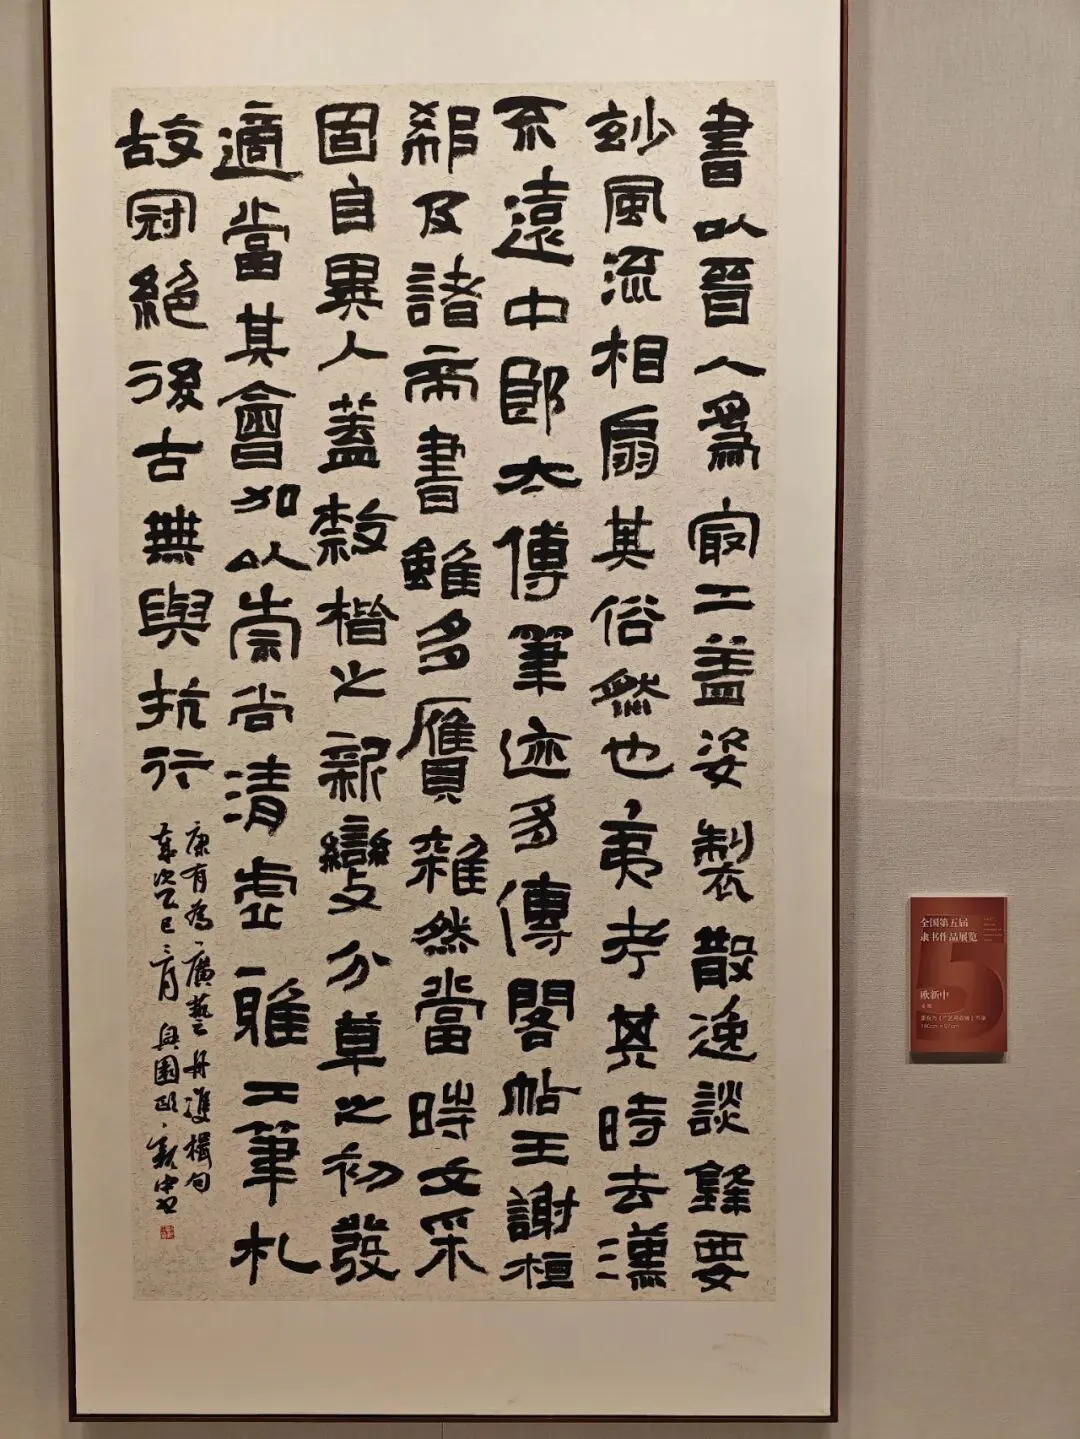 書以晉人爲冣工蓋姿製散逸談鋒要
玅風流相扇其俗然也夷考其時去漢
不遠中郎太傅筆迹多傳閣帖王謝桓
郗及諸帝書雖多贋雜然當時文采
固自異人蓋隸楷之新變分草之初發
適當其會加以崇尚清虛雅工筆札
故冠絕後古無與抗行
康有為廣藝舟雙楫句
歲次乙巳三月與園歐新中書
全国第五届
隶书作品展览
欧新中
180cm×97cm